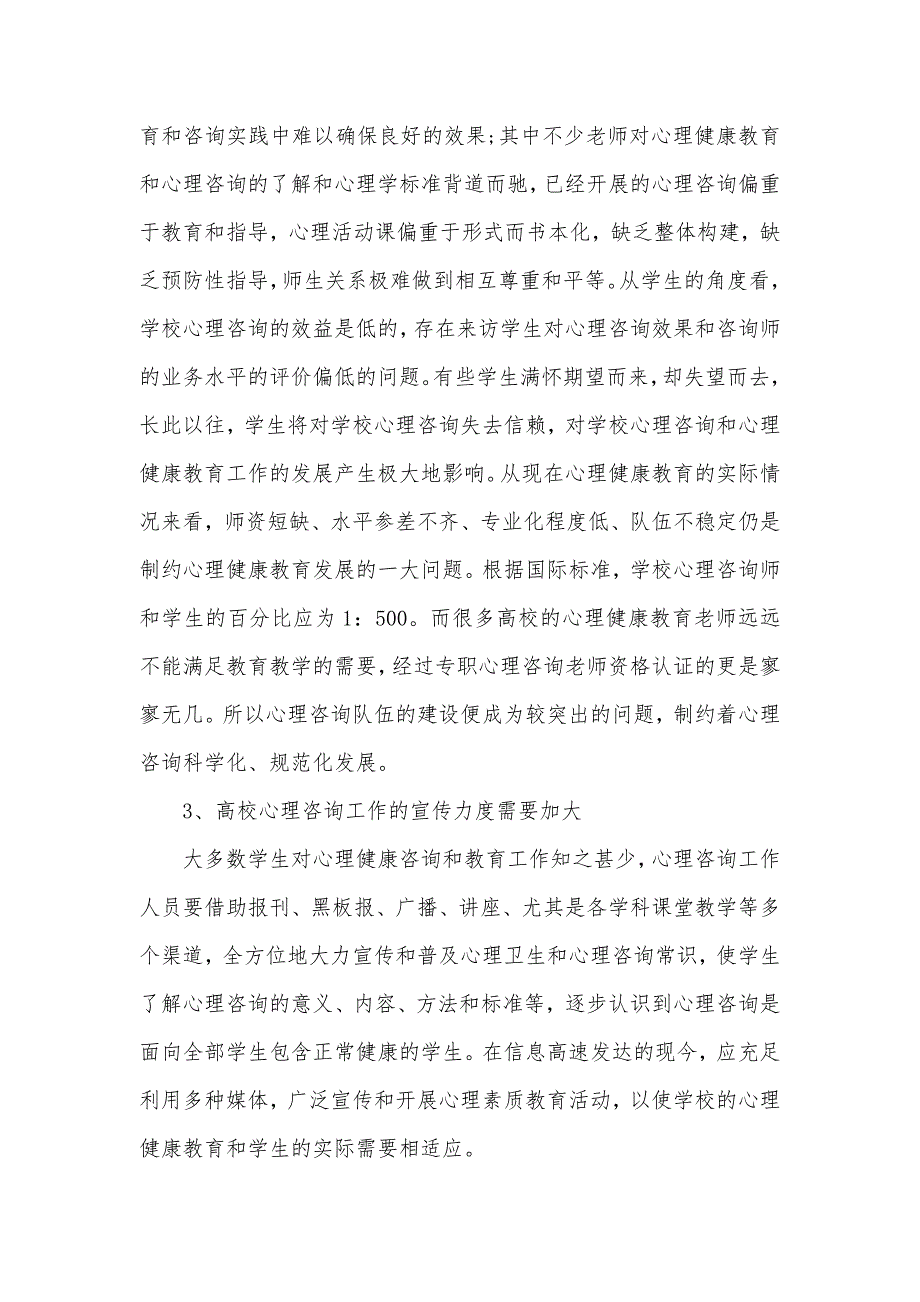 育和咨询实践中难以确保良好的效果;其中不少老师对心理健康教育
和心理咨询的了解和心理学标准背道而驰，已经开展的心理咨询偏重
于教育和指导，心理活动课偏重于形式而书本化，缺乏整体构建，缺
乏预防性指导，师生关系极难做到相互尊重和平等。从学生的角度看，
学校心理咨询的效益是低的，存在来访学生对心理咨询效果和咨询师
的业务水平的评价偏低的问题。有些学生满怀期望而来，却失望而去，
长此以往，学生将对学校心理咨询失去信赖，对学校心理咨询和心理
健康教育工作的发展产生极大地影响。从现在心理健康教育的实际情
况来看，师资短缺、水平参差不齐、专业化程度低、队伍不稳定仍是
制约心理健康教育发展的一大问题。根据国际标准，学校心理咨询师
和学生的百分比应为1：500。而很多高校的心理健康教育老师远远
不能满足教育教学的需要，经过专职心理咨询老师资格认证的更是寥
寥无几。所以心理咨询队伍的建设便成为较突出的问题，制约着心理
咨询科学化、规范化发展。
3、高校心理咨询工作的宣传力度需要加大
大多数学生对心理健康咨询和教育工作知之甚少，心理咨询工作
人员要借助报刊、黑板报、广播、讲座、尤其是各学科课堂教学等多
个渠道，全方位地大力宣传和普及心理卫生和心理咨询常识，使学生
了解心理咨询的意义、内容、方法和标准等，逐步认识到心理咨询是
面向全部学生包含正常健康的学生。在信息高速发达的现今，应充足
利用多种媒体，广泛宣传和开展心理素质教育活动，以使学校的心理
健康教育和学生的实际需要相适应。